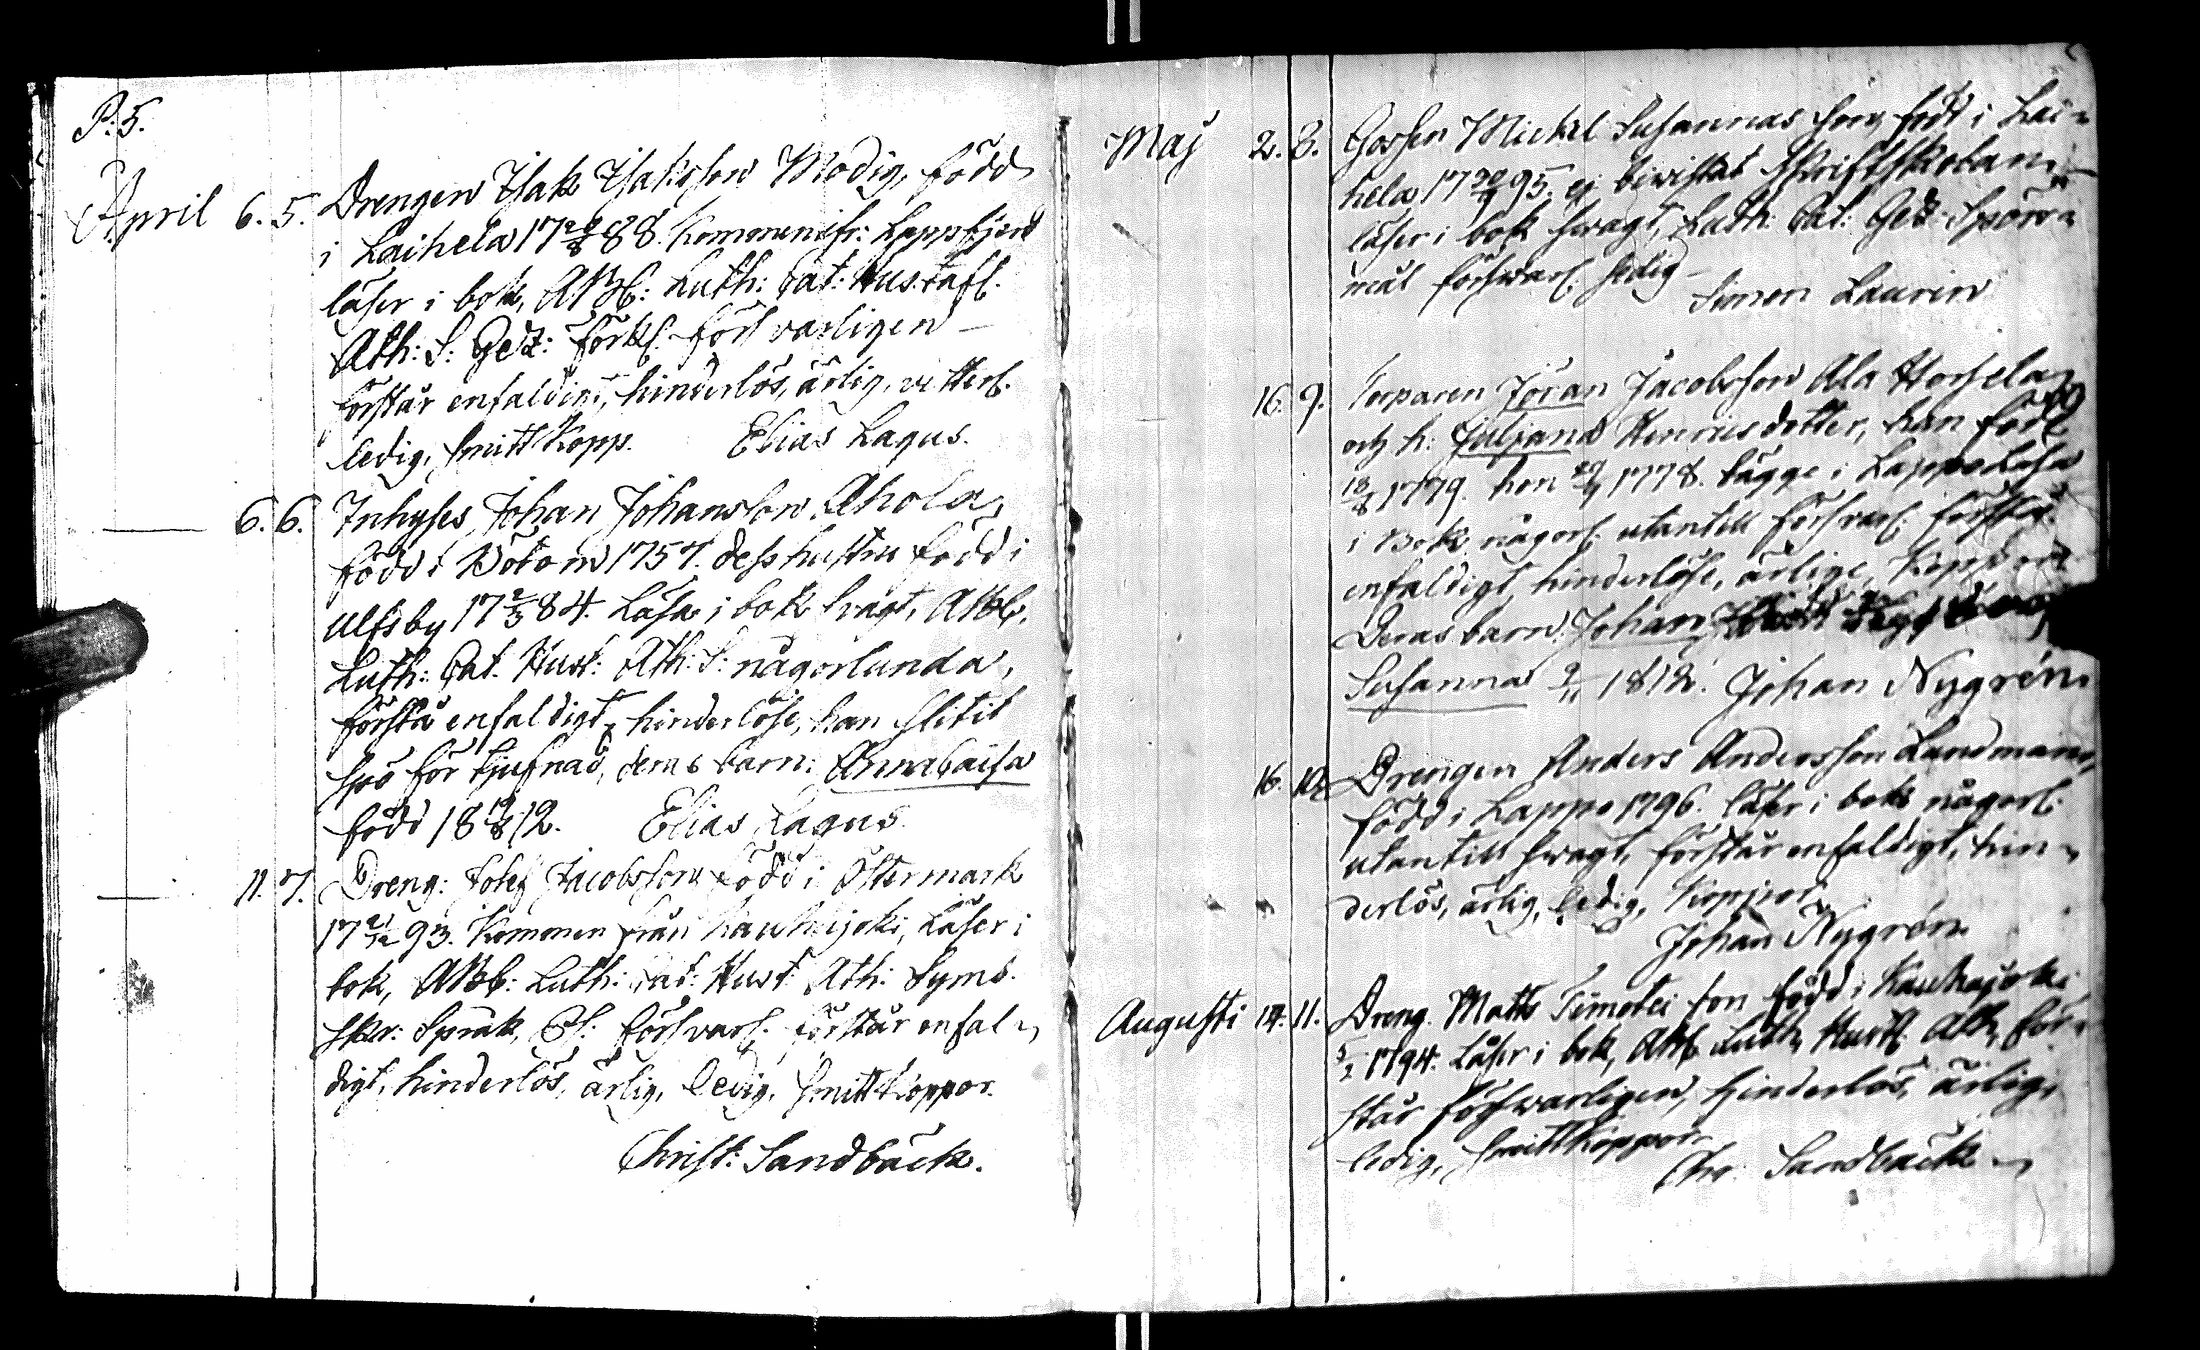 P. 5.
April 6. 5. Drengen Isak Isaksson Modig, född
i Laihela 17 29/8 88. kommen ifr: Lappfjerd
läser i bok, ABC: Luth: Cat: Hustafl.
Ath: S: Gez: förkl. försvarligen –
förstår enfaldigt, hinderlös, ärlig, vitterl.
ledig, Smitt Kopp. Elias Lagus.
6. 6. Inhyses Johan Johansson Ahola,
född i Bötom 1757. dess hustru född i
Ulfsby 17 2/3 84. Läsa i bok svagt, ABC.
Luth: Cat. Hust: Ath: S: någorlunda,
förstå enfaldigt, hinderlöse, han slitit
spö för tjufnad, deras barn: Anna Caisa
född 18 /8 12. Elias Lagus.
11. 7. Dreng: Josef Jacobsson född i Östermark
17 21/12 93. Kommen från Kauhajoki, Läser i
bok, ABC: Luth: Cat: Hust Ath: Symb.
Skr: Språk, försvarl. förstår enfal-
digt, hinderlös, ärlig, ledig, Smittkoppor.
Christ: Sandbäck.
Maj 2. 8. Gossen Mickel Susannas son, född i Lai-
hela 17 95. ej bivistat Skriftskolan,
läser i bok svagt, Luth: Cat: Gez: Spörs-
mål försvarl. ledig –
Simon Laurin
16. 9. Torparen Jöran Jacobsson Ala Horsela
och h: Juljana Henriksdotter, han född
18/8 1779. hon 29/9 1778. bägge i Lappo Läsa
i Bok någorl. utantill försvarl. förstå
enfaldigt, hinderlöse, ärlige, Koppor
Deras barn: Johan
Susanna 2/11 1812. Johan Nygrén.
16. 10. Drengen Anders Andersson Lundman,
född i Lappo 1796. läser i bok någorl.
utantill svagt, förstår enfaldigt, hin-
derlös, ärlig, ledig, Koppor,
Johan Nygrén
Augusti 14. 11. Dreng. Matts Timotei son född i Kauhajoki
5/2 1794. Läser i bok, ABC Luth, Hustl. Ath, för-
står försvarligen, hinderlös, ärlig,
ledig, Smittkoppor
Chr: Sandbäck